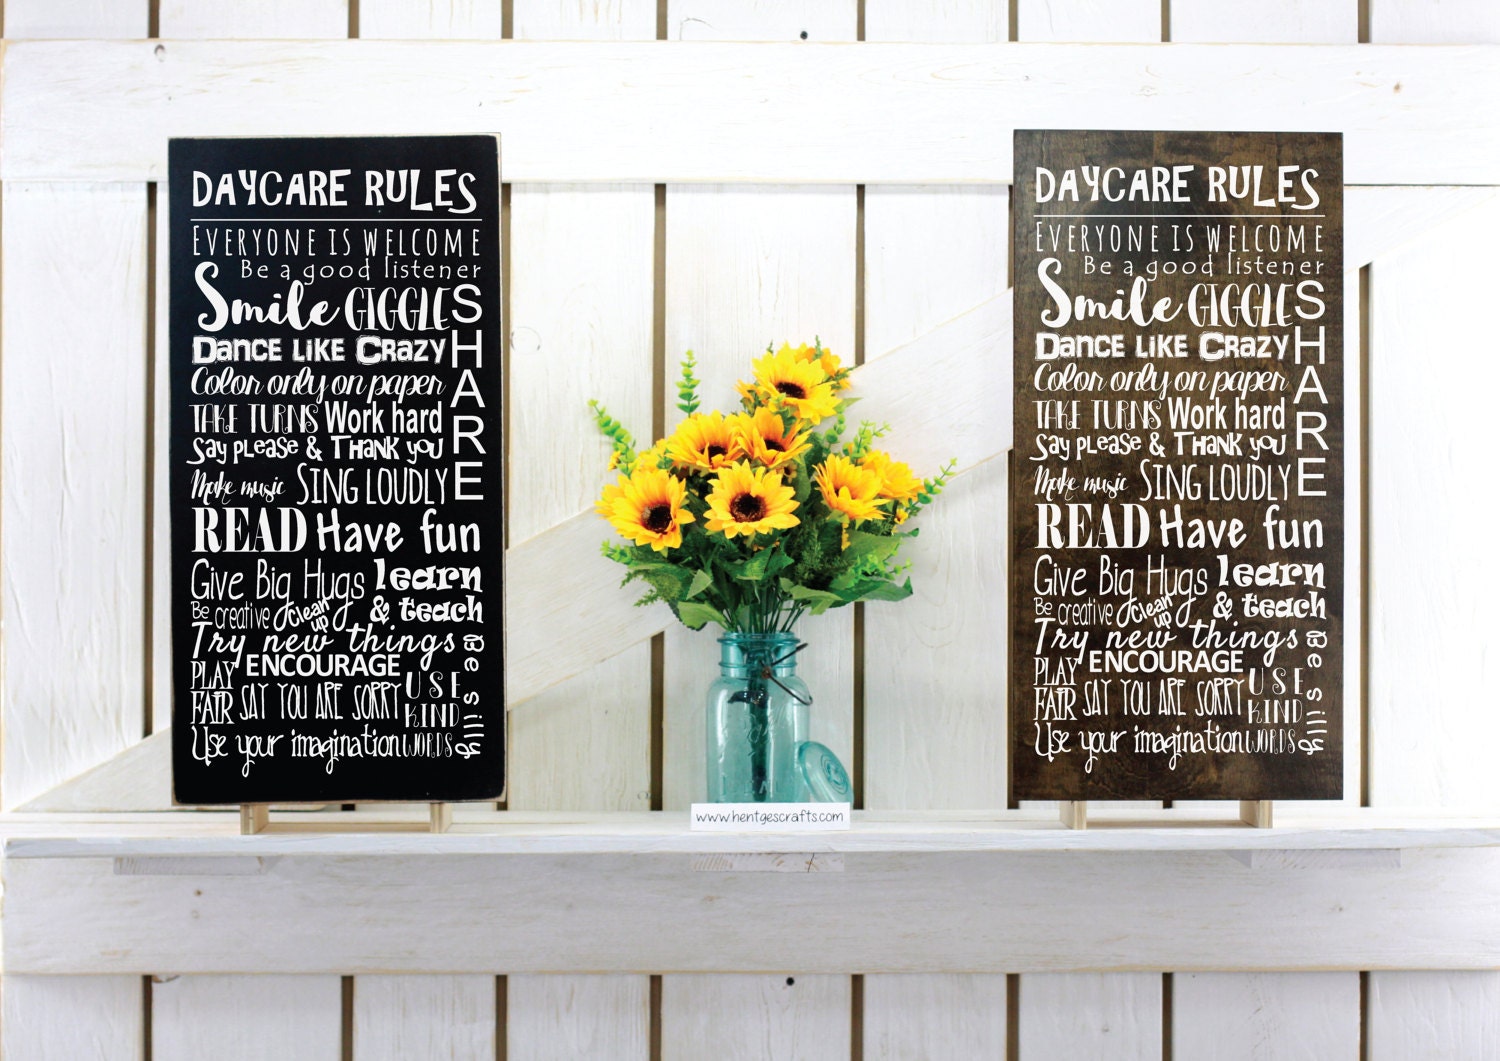 DAYCARE RULES
EVERYONE IS WELCOME
Be a good listener
Smile GIGGLE
SHARE
DANCE LIKE CRAZY
Color only on paper
TAKE TURNS Work hard
SAY PLEASE & THANK YOU
Make music SING LOUDLY
READ Have fun
Give Big Hugs learn
& teach
Be creative clean up
Try new things
Be silly
PLAY FAIR
ENCOURAGE
SAY YOU ARE SORRY
USE KIND WORDS
Use your imagination
www.hentgescrafts.com
DAYCARE RULES
EVERYONE IS WELCOME
Be a good listener
Smile GIGGLE
SHARE
DANCE LIKE CRAZY
Color only on paper
TAKE TURNS Work hard
SAY PLEASE & THANK YOU
Make music SING LOUDLY
READ Have fun
Give Big Hugs learn
& teach
Be creative clean up
Try new things
Be silly
PLAY FAIR
ENCOURAGE
SAY YOU ARE SORRY
USE KIND WORDS
Use your imagination